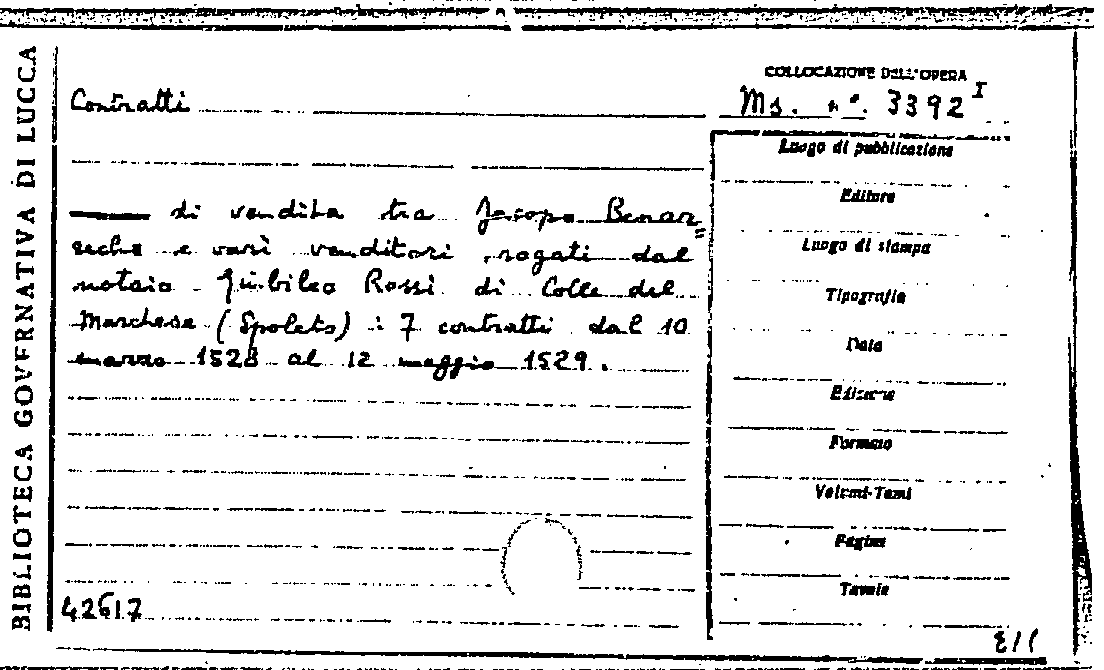 BIBLIOTECA GOVERNATIVA DI LUCCA
COLLOCAZIONE DELL'OPERA
Contratti
Ms. n°. 3392 I
di vendita tra Jacopo Benar=
recha e varî venditori, rogati dal
notaio Giubileo Rossi di Colle del
Marchese (Spoleto) : 7 contratti dal 10
marzo 1528 al 12 maggio 1529.
42617
Luogo di pubblicazione
Editore
Luogo di stampa
Tipografia
Data
Edizione
Formato
Volumi-Tomi
Pagine
Tavole